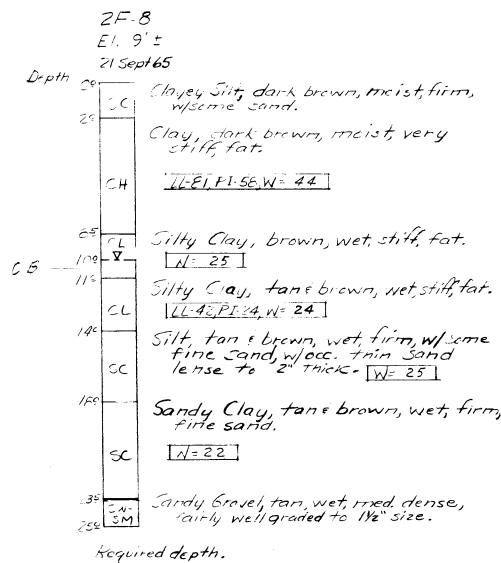 2F-8
El. 9' ±
21 Sept 65
Depth
SC Clayey Silt, dark brown, moist, firm,
w/some sand.
Clay, dark brown, moist, very
stiff, fat.
CH LL-81, PI-58, W= 44
CL Silty Clay, brown, wet, stiff, fat.
W= 25
Silty Clay, tan & brown, wet, stiff, fat.
CL LL-42, PI-24, W= 24
Silt, tan & brown, wet, firm, w/some
fine sand, w/occ. thin sand
SC lense to 2" thick- W= 25
Sandy Clay, tan & brown, wet, firm,
fine sand.
SC W=22
SM Sandy Gravel, tan, wet, med. dense,
fairly well graded to 1½" size.
Required depth.